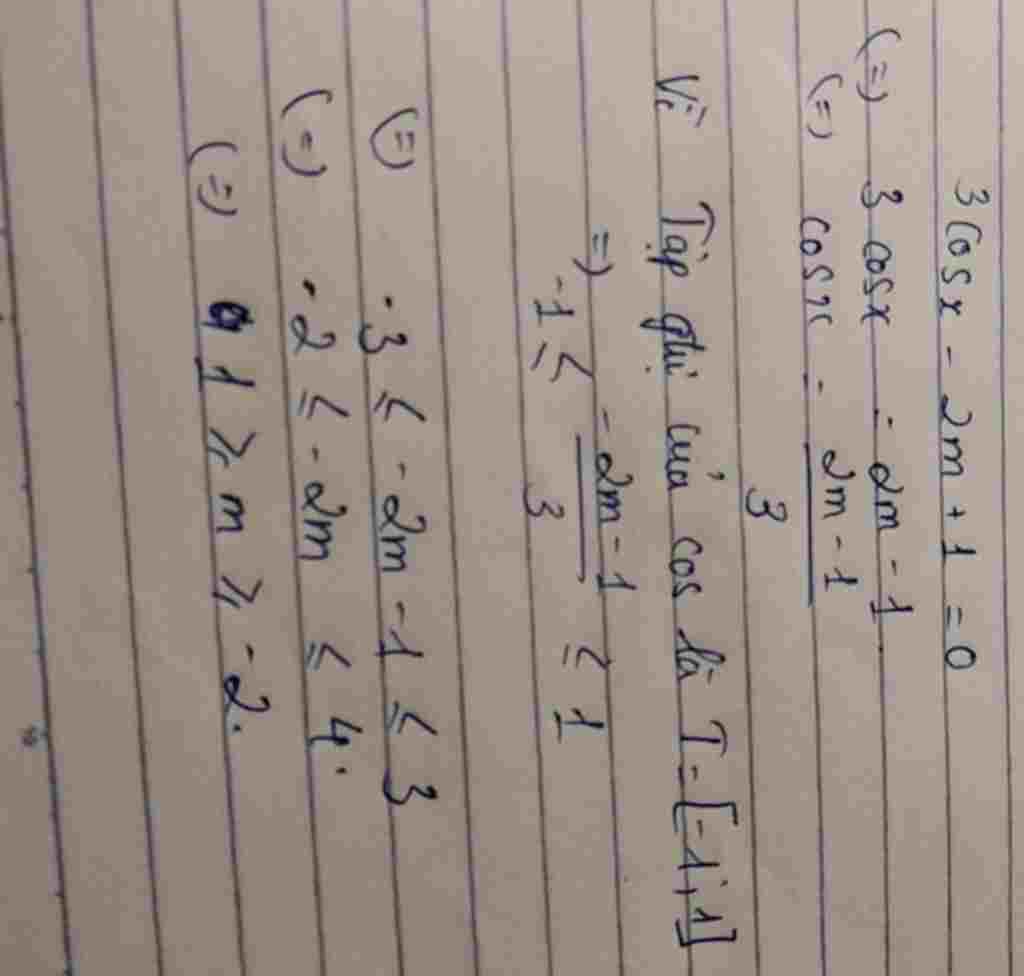 3cosx - 2m + 1 = 0
(=) 3cosx = 2m - 1
(=) cosx = 2m - 1
3
Vì Tập giá trị của cos là T = [-1; 1]
=) -2m - 1
-1 ≤ ≤ 1
3
(=) -3 ≤ -2m - 1 ≤ 3
(=) -2 ≤ -2m ≤ 4.
(=) 1 ≥ m ≥ -2.